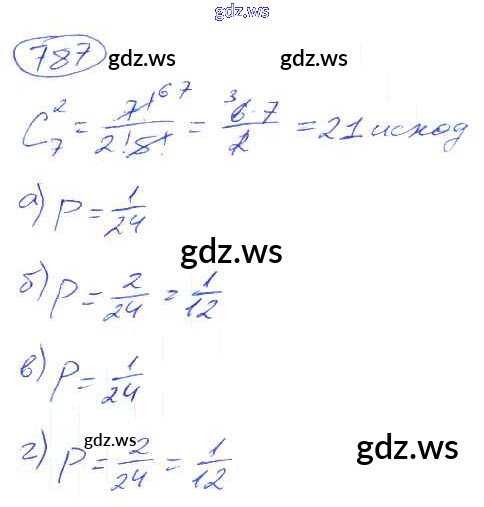 gdz.ws
787 gdz.ws gdz.ws
C₇² = 7! 6 7 / 2! 5! = 3 6·7 / 2 = 21 исход
а) P = 1/24
gdz.ws
б) P = 2/24 = 1/12
в) P = 1/24
г) P = 2/24 = 1/12
gdz.ws gdz.ws